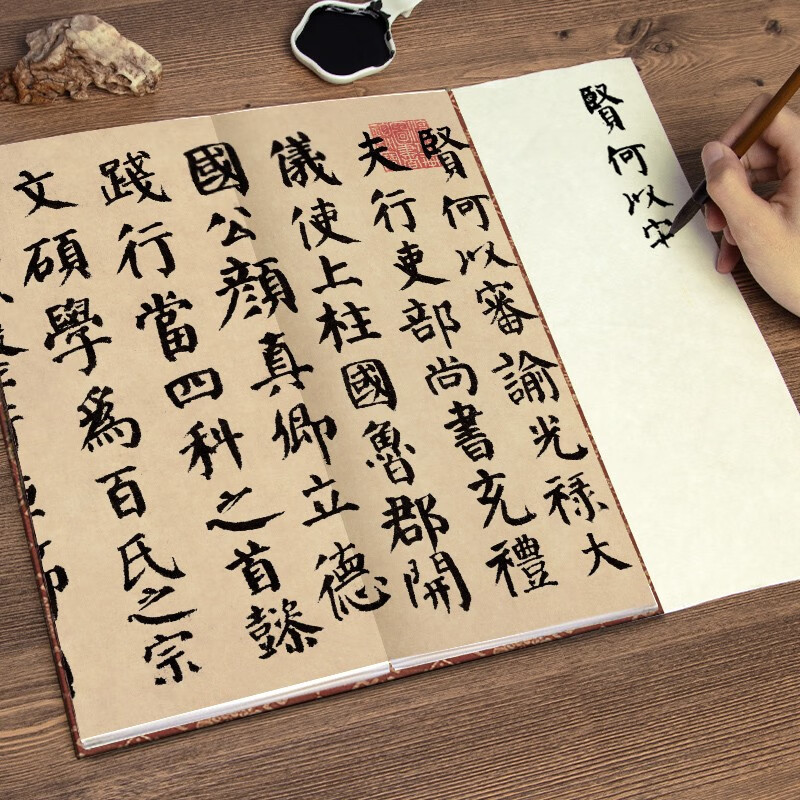 賢何以
賢何以審諭光禄大
夫行吏部尚書充禮
儀使上柱國魯郡開
國公顔真卿立德
踐行當四科之首懿
文碩學爲百氏之宗